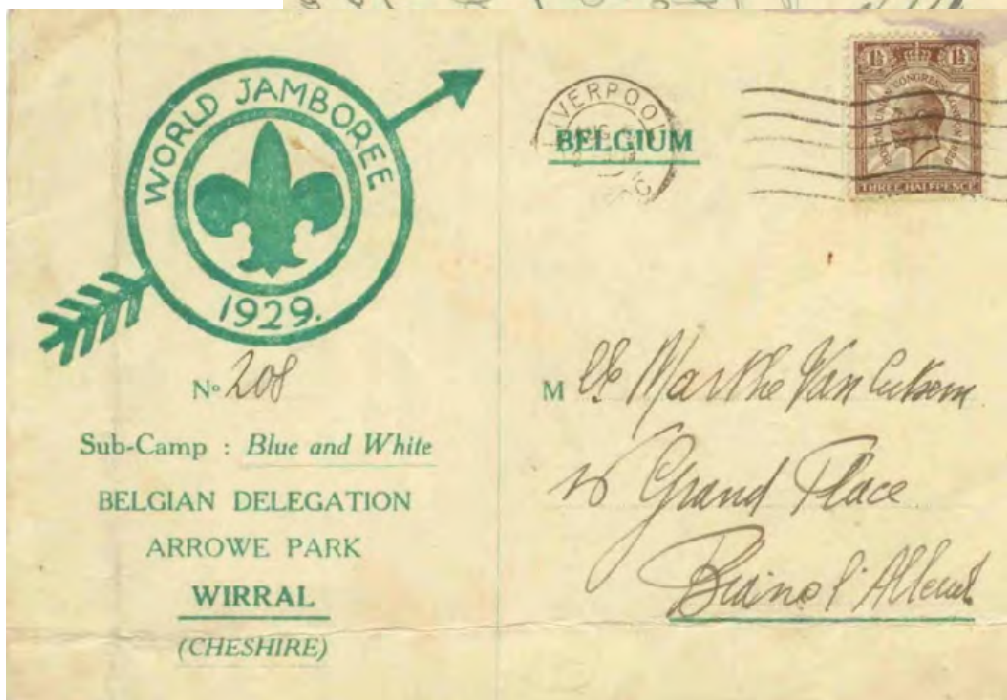 WORLD JAMBOREE
1929.
No 208
Sub-Camp : Blue and White
BELGIAN DELEGATION
ARROWE PARK
WIRRAL
(CHESHIRE)
LIVERPOOL
BELGIUM
1½ 1½
POSTAL UNION CONGRESS LONDON 1929
THREE HALFPENCE
M lle Marthe Van Cutsem
Grand Place
Braine l'Alleud